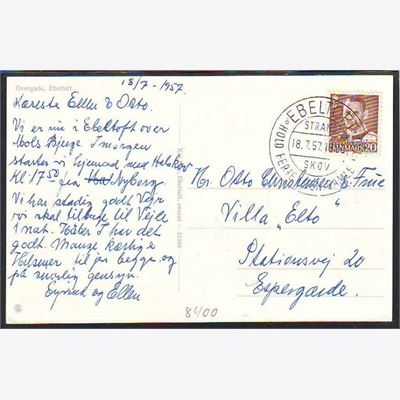 Overgade, Ebeltoft
18/7-1957
Kæreste Ellen & Otto.
Vi er nu i Ebeltoft over
Mols Bjerge I morgen
starter vi hjemad med
Kl 17 50 fra Nyborg
Vi har stadig godt Vejr
vi skal tilbage til Vejle
i nat. Håber I har det
godt. Mange kærlige
Hilsner til jer begge og
på snarlig gensyn.
Eyvind og Ellen
EBELTOFT
STRAND
18.7.57.
SKOV
HOLD FERIE
DANMARK 20
Hr. Otto Christensen & Frue
Villa "Elto"
Stationsvej 20
Espergærde.
8400